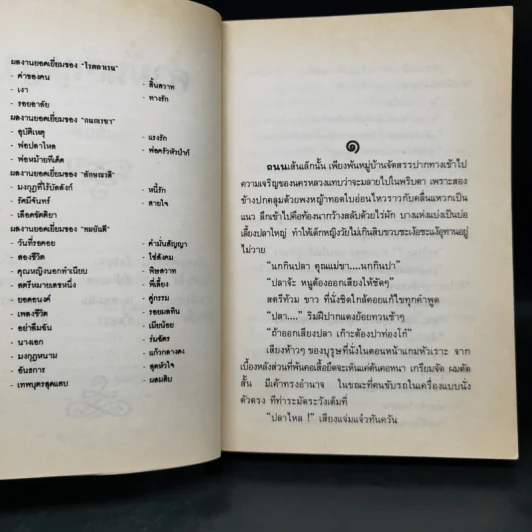 ผลงานยอดเยี่ยมของ "โรสลาเรน"
- ค่าของคน
- เงา
- รอยอาลัย
- สิ้นสวาท
- ทางรัก
ผลงานยอดเยี่ยมของ "กนกเรขา"
- อุบัติเหตุ
- พ่อปลาไหล
- พ่อม่ายทีเด็ด
- แรงรัก
- พ่อครัวหัวป่าก์
ผลงานยอดเยี่ยมของ "ลักษณวดี"
- มงกุฎที่ไร้บัลลังก์
- รัศมีจันทร์
- เลือดขัตติยา
- หนี้รัก
- สายใจ
ผลงานยอดเยี่ยมของ "ทมยันตี"
- วันที่รอคอย
- สองชีวิต
- คุณหญิงนอกทำเนียบ
- สตรีหมายเลขหนึ่ง
- ยอดอนงค์
- เพลงชีวิต
- อย่าลืมฉัน
- นางเอก
- มงกุฎหนาม
- อันธการ
- เทพบุตรสุดแสบ
- คำมั่นสัญญา
- โซ่สังคม
- พิษสวาท
- พี่เลี้ยง
- คู่กรรม
- รอยมลทิน
- เมียน้อย
- ร่มฉัตร
- แก้วกลางดง
- สุดหัวใจ
- ผสมสิบ
๑
ถนนเส้นเล็กนั้น เพียงพ้นหมู่บ้านจัดสรรปากทางเข้าไป
ความเจริญของนครหลวงแทบว่าจะมลายไปในพริบตา เพราะสอง
ข้างปกคลุมด้วยพงหญ้าทอดใบอ่อนไหวราวกับคลื่นแหวกเป็น
แนว ลึกเข้าไปคือท้องนากว้างสลับด้วยไร่ผัก บางแห่งแบ่งเป็นบ่อ
เลี้ยงปลาใหญ่ ทำให้เด็กหญิงวัยไม่เกินสิบขวบชะเง้อชะแง้อุทานอยู่
ไม่วาย
"นกกินปลา คุณแม่ขา....นกกินปา"
"ปลาจ้ะ หนูต้องออกเสียงให้ชัดๆ"
สตรีท้วม ขาว ที่นั่งชิดใกล้คอยแก้ไขทุกคำพูด
"ปลา...." ริมฝีปากแดงย้อยทวนช้าๆ
"ถ้าออกเสียงปลา เก๊าะต้องปาท่องโก๋"
เสียงห้าวๆ ของบุรุษที่นั่งในตอนหน้าแกมหัวเราะ จาก
เบื้องหลังส่วนที่พ้นคอเสื้อยืดจะเห็นแค่ต้นคอหนา เกรียมจัด ผมตัด
สั้น มีเค้าทรงอำนาจ ในขณะที่คนขับรถในเครื่องแบบนั่ง
ตัวตรง ทีท่าระมัดระวังเต็มที่
"ปลาไหล !" เสียงแจ่มแจ้วทันควัน